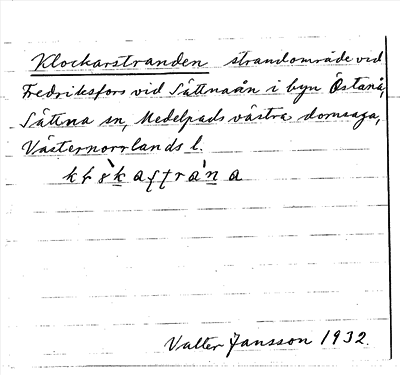 Klockarstranden strandområde vid
Fredriksfors vid Sättnaån i byn Östanå,
Sättna sn, Medelpads västra domsaga,
Västernorrlands l.
Valter Jansson 1932.